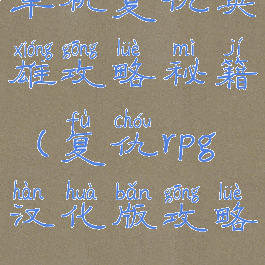 单机复仇英
xióng gōng lüè mì jí
雄攻略秘籍
fù chóu
(复仇rpg
hàn huà bǎn gōng lüè
汉化版攻略